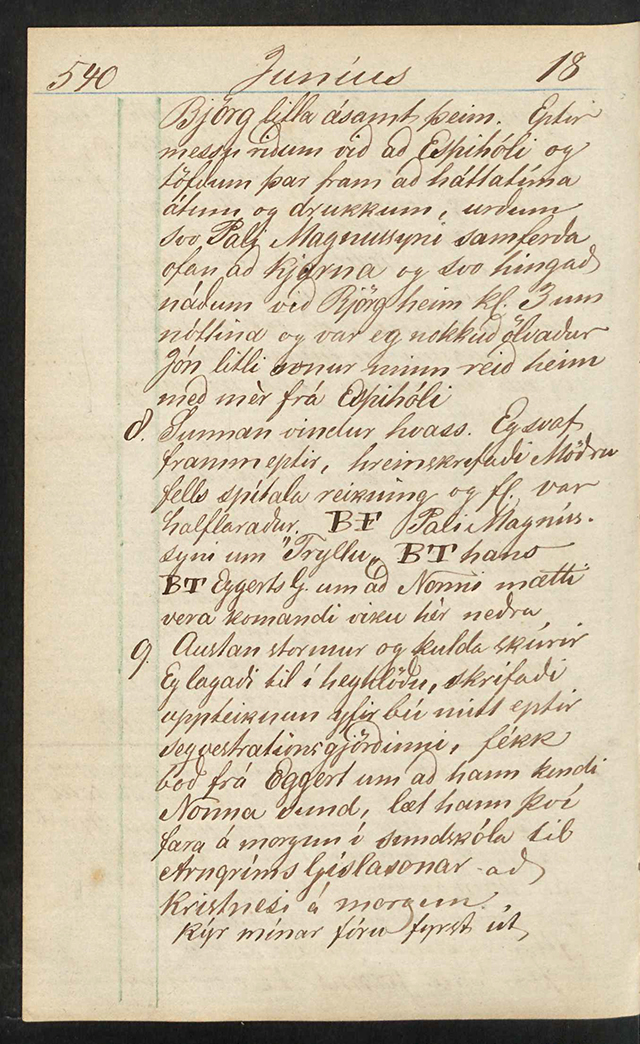 540 Juníus 18
Björg litla ásamt þeim. Eptir
messu riðum við að Espihóli og
töfðum þar fram að háttatíma
átum og drukkum, urðum
svo Pali Magnussyni samferða
ofan að Kjarna og svo hingað
náðum við Björg heim kl. 3 um
nóttina og var eg nokkuð ölvaður
Jón litli sonur minn reið heim
með mèr frá Espihóli
8. Sunnan vindur hvass. Eg svaf
framm eptir, hreinskrifaði Möðru
fells spítala reikning og fl. var
halflaraður. BF Pali Magnús-
syni um "Tryllu„ BT hans
BT Eggerts G. um að Nonni mætti
vera komandi viku hèr neðra
9. Austan stormur og kulda skúrir
Eg lagaði til í heyhlöðu, skrifaði
uppteiknun yfir bú mitt eptir
segvestrationsgjörðinni, fékk
boð frá Eggert um að hann kendi
Nonna sund, læt hann því
fara á morgun í sundskóla til
Arngríms Gíslasonar að
Kristnesi á morgun.
Kýr mínar fóru fyrst út